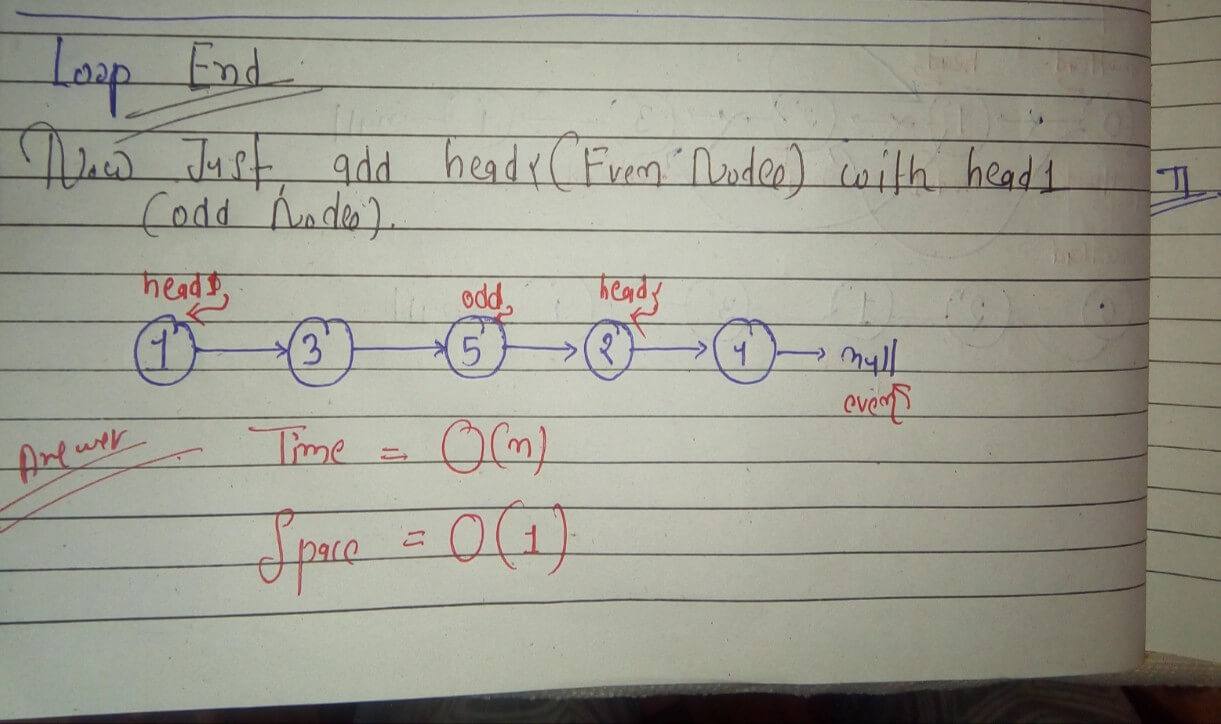 Loop End
Now Just add head2 (Even Nodes) with head1
(odd Nodes).
head1 odd head2
1 → 3 → 5 → 2 → 4 → null
even
Answer Time = O(n)
Space = O(1)